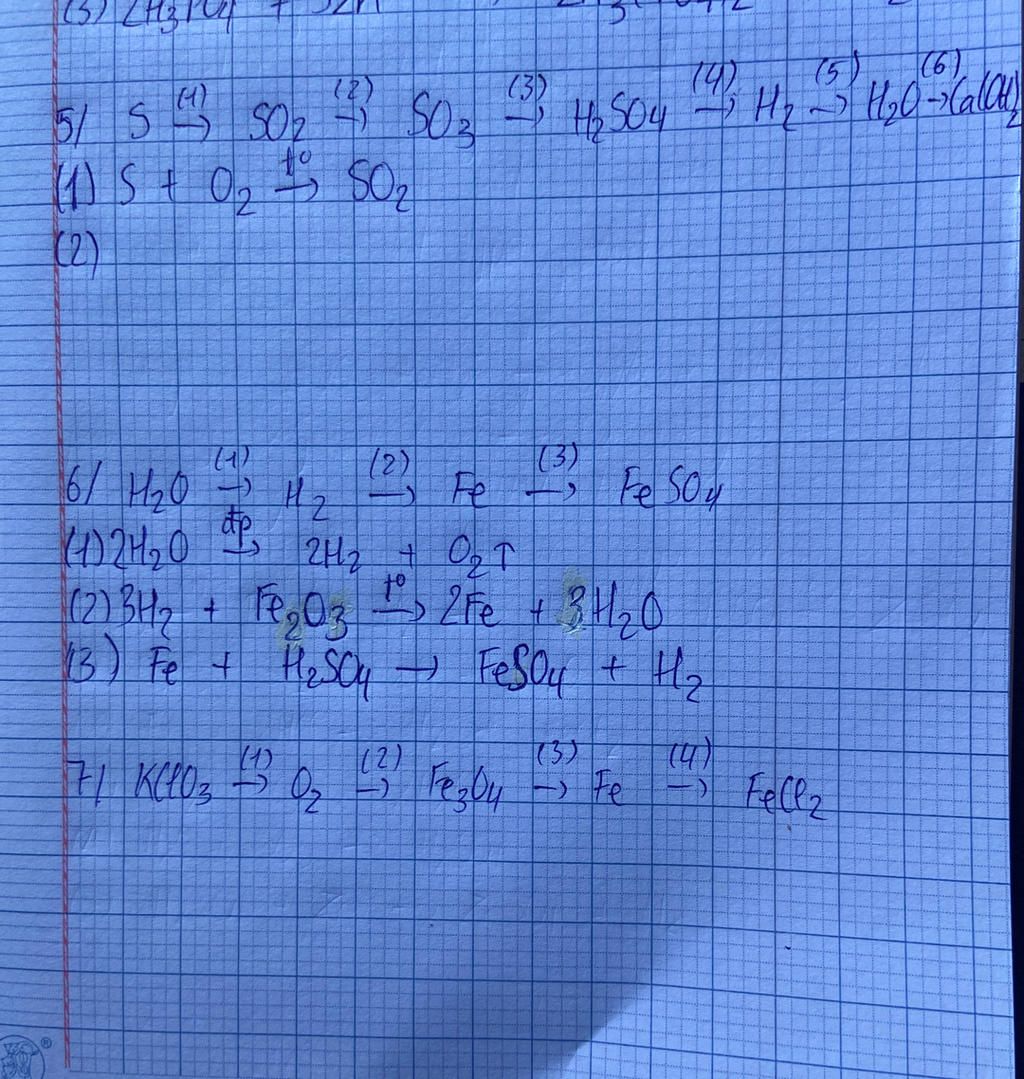 5/ S (1)→ SO₂ (2)→ SO₃ (3)→ H₂SO₄ (4)→ H₂ (5)→ H₂O (6)→ Ca(OH)₂
(1) S + O₂ t°→ SO₂
(2)
6/ H₂O (1)→ H₂ (2)→ Fe (3)→ FeSO₄
(1) 2H₂O đp→ 2H₂ + O₂↑
(2) 3H₂ + Fe₂O₃ t°→ 2Fe + 3H₂O
(3) Fe + H₂SO₄ → FeSO₄ + H₂
7/ KClO₃ (1)→ O₂ (2)→ Fe₃O₄ (3)→ Fe (4)→ FeCl₂
®